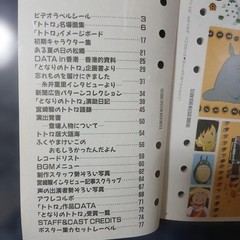 ビデオラベルシール 3
「トトロ」名場面集 6
「トトロ」イメージボード
初期キャラクター集 17
ある夏の日の松郷 21
DATA in香港—香港的資料 25
「となりのトトロ」企画書より 29
忘れものを届けにきました 31
糸井重里インタビューより
新聞広告パターンコレクション 34
「となりのトトロ」漬動日記 35
宮崎駿のトトロ語録 37
演出覚書
登場人物について 50
トトロだド 54
ふくやまけいこの 56
おもしろかったんだよん 60
レコードリスト 60
BGMメニュー 61
制作スタッフ勢ぞろい写真 62
宮崎駿インタビュー記事スクラップ 64
声の出演者勢ぞろい写真 65
アフレコルポ 72
「トトロ」作品DATA 74
「となりのトトロ」受賞一覧 76
STAFF&CAST CREDITS 77
ポスター集カセットレーベル